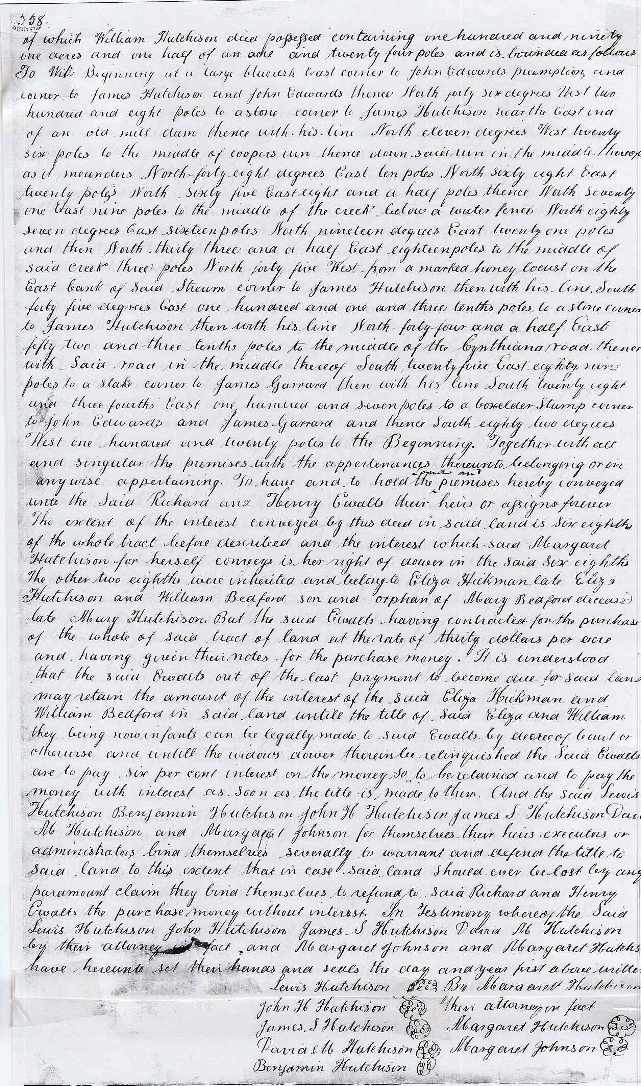 358
of which William Hutchison died possessed containing one hundred and ninety
one acres and one half of an acre and twenty four poles and is bounded as follows
To Wit Beginning at a large blueish East corner to John Edwards preemption and
corner to James Hutchison and John Edwards thence North forty six degrees West two
hundred and eight poles to a stone corner to James Hutchison near the East end
of an old mill dam thence with his line North eleven degrees West twenty
six poles to the middle of coopers run thence down said run in the middle thereof
as it meanders North forty eight degrees East ten poles North sixty eight East
twenty poles North sixty five East eight and a half poles thence North seventy
one East nine poles to the middle of the creek below a water fence North eighty
seven degrees East sixteen poles North nineteen degrees East twenty one poles
and then North thirty three and a half East eighteen poles to the middle of
said creek three poles North forty five West from a marked honey locust on the
East bank of said Stream corner to James Hutchison then with his line South
forty five degrees East one hundred and one and three tenths poles to a stone corner
to James Hutchison then with his line North forty four and a half East
fifty two and three tenths poles to the middle of the Cynthiana road thence
with said road in the middle thereof South twenty five East eighty nine
poles to a stake corner to James Garrard then with his line South twenty eight
and three fourths East one hundred and seven poles to a boxelder Stump corner
to John Edwards and James Garrard and thence South eighty two degrees
West one hundred and twenty poles to the Beginning. Together with all
and singular the premises with the appertenances thereunto belonging or in
any wise appertaining. To have and to hold the premises hereby conveyed
unto the Said Richard and Henry Ewalts their heirs or assigns forever
The extent of the interest conveyed by this deed in said land is Six eighths
of the whole tract before described and the interest which said Margaret
Hutchison for herself conveys is her right of dower in the said six eighths
The other two eighths were inherited and belong to Eliza Hickman late Eliza
Hutchison and William Bedford son and orphan of Mary Bedford deceased
late Mary Hutchison. But the said Ewalts having contracted for the purchase
of the whole of said tract of land at the rate of thirty dollars per acre
and having given their notes for the purchase money. It is understood
that the said Ewalts out of the last payment to become due for said land
may retain the amount of the interest of the said Eliza Hickman and
William Bedford in said land untill the title of said Eliza and William
they being now infants can be legally made to said Ewalts by decree of court or
otherwise and untill the widows dower therein be relinquished the Said Ewalts
are to pay six per cent interest on the money so to be retained and to pay the
money with interest as soon as the title is made to them. And the said Lewis
Hutchison Benjamin Hutchison John H Hutchison James S Hutchison David
M Hutchison and Margaret Johnson for themselves their heirs executors or
administrators bind themselves severally to warrant and defend the title to
said land to this extent that in case said land should ever be lost by any
paramount claim they bind themselves to refund to said Richard and Henry
Ewalts the purchase money without interest. In Testimony whereof the Said
Lewis Hutchison John Hutchison James S Hutchison David M Hutchison
by their attorney in fact and Margaret Johnson and Margaret Hutchis
have hereunto set their hands and seals the day and year first above written
Lewis Hutchison By Margaret Hutchison
John H Hutchison their attorney in fact
James S Hutchison Margaret Hutchison
David M Hutchison Margaret Johnson
Benjamin Hutchison